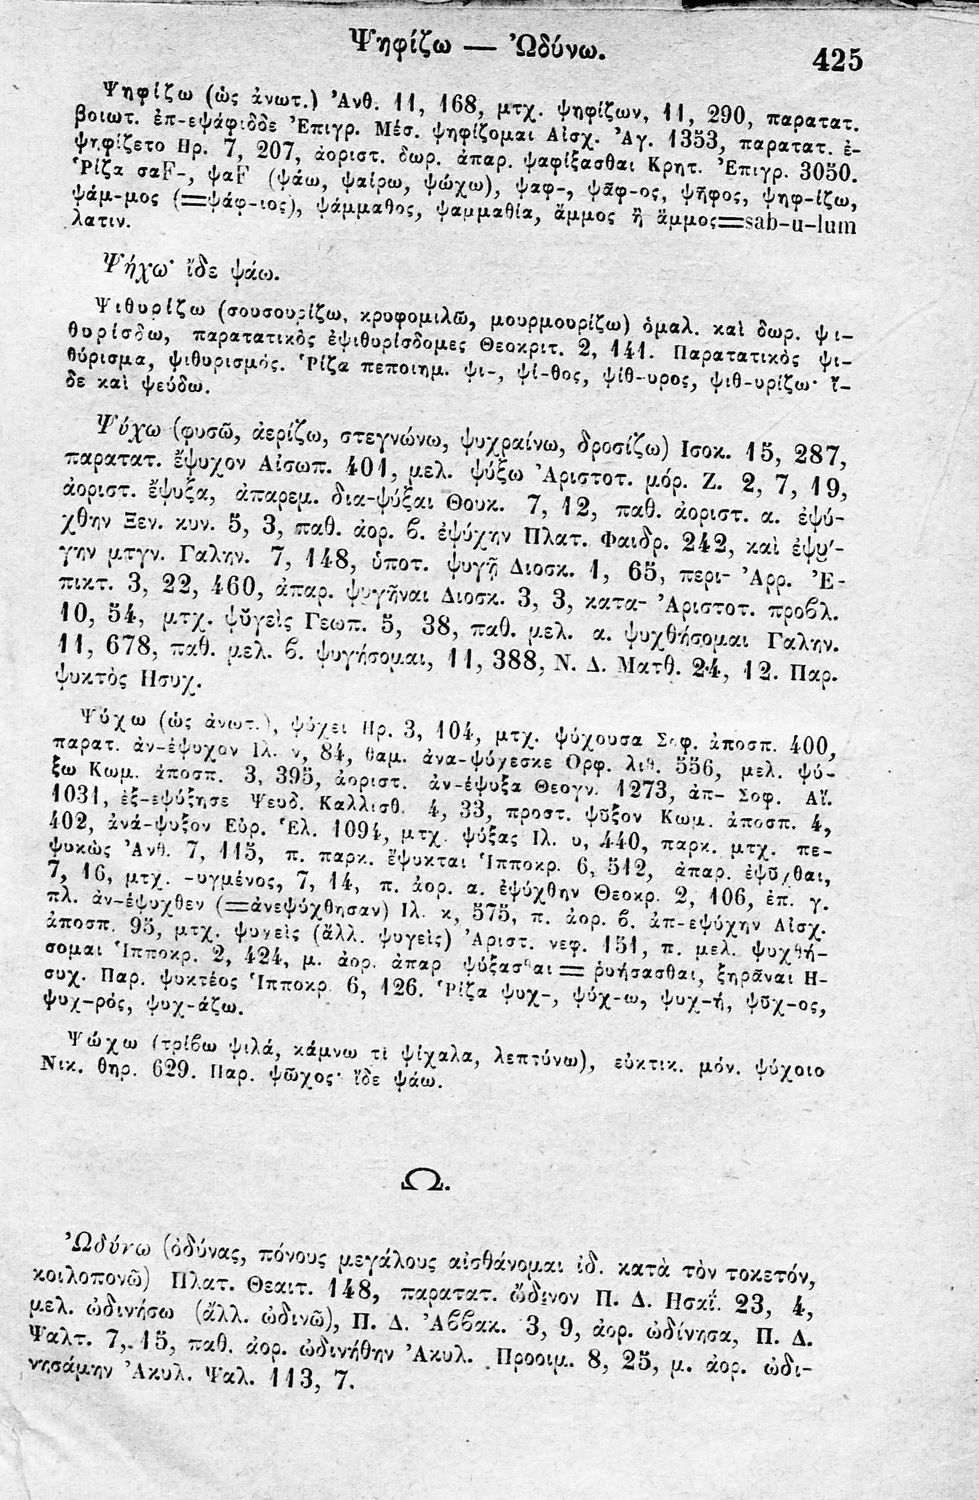 Ψηφίζω — Ὠδύνω.
425
Ψηφίζω (ὡς ἀνωτ.) Ἀνθ. 11, 168, μτχ. ψηφίζων, 11, 290, παρατατ.
βοιωτ. ἐπ-εψάφιδδε Ἐπιγρ. Μέσ. ψηφίζομαι Αἰσχ. Ἀγ. 1353, παρατατ. ἐ-
ψηφίζετο Ηρ. 7, 207, ἀοριστ. δωρ. ἀπαρ. ψαφίξασθαι Κρητ. Ἐπιγρ. 3050.
Ῥίζα σαϜ-, ψαϜ (ψάω, ψαίρω, ψώχω), ψαφ-, ψᾶφ-ος, ψῆφος, ψηφ-ίζω,
ψάμ-μος (=ψάφ-ιος), ψάμμαθος, ψαμμαθία, ἄμμος ἢ ἅμμος=sab-u-lum
λατιν.
Ψήχω· ἴδε ψάω.
Ψιθυρίζω (σουσουρίζω, κρυφομιλῶ, μουρμουρίζω) ὁμαλ. καὶ δωρ. ψι-
θυρίσδω, παρατατικὸς ἐψιθυρίσδομες Θεοκριτ. 2, 141. Παρατατικὸς ψι-
θύρισμα, ψιθυρισμός. Ῥίζα πεποιημ. ψι-, ψί-θος, ψίθ-υρος, ψιθ-υρίζω· ἴ-
δε καὶ ψεύδω.
Ψύχω (φυσῶ, ἀερίζω, στεγνώνω, ψυχραίνω, δροσίζω) Ισοκ. 15, 287,
παρατατ. ἔψυχον Αἰσωπ. 401, μελ. ψύξω Ἀριστοτ. μόρ. Ζ. 2, 7, 19,
ἀοριστ. ἔψυξα, ἀπαρεμ. δια-ψύξαι Θουκ. 7, 12, παθ. ἀοριστ. α. ἐψύ-
χθην Ξεν. κυν. 5, 3, παθ. ἀορ. ϐ. ἐψύχην Πλατ. Φαιδρ. 242, καὶ ἐψύ-
γην μτγν. Γαλην. 7, 148, ὑποτ. ψυγῇ Διοσκ. 1, 65, περι- Ἀρρ. Ἐ-
πικτ. 3, 22, 460, ἀπαρ. ψυγῆναι Διοσκ. 3, 3, κατα- Ἀριστοτ. προϐλ.
10, 54, μτχ. ψῠγεὶς Γεωπ. 5, 38, παθ. μελ. α. ψυχθήσομαι Γαλην.
11, 678, παθ. μελ. ϐ. ψυγήσομαι, 11, 388, Ν. Δ. Ματθ. 24, 12. Παρ.
ψυκτὸς Ησυχ.
Ψύχω (ὡς ἀνωτ.), ψύχει Ηρ. 3, 104, μτχ. ψύχουσα Σοφ. ἀποσπ. 400,
παρατ. ἀν-έψυχον Ιλ. ν, 84, θαμ. ἀνα-ψύχεσκε Ορφ. λιθ. 556, μελ. ψύ-
ξω Κωμ. ἀποσπ. 3, 395, ἀοριστ. ἀν-έψυξα Θεογν. 1273, ἀπ- Σοφ. Αἴ.
1031, ἐξ-εψύξησε Ψευδ. Καλλισθ. 4, 33, προστ. ψῦξον Κωμ. ἀποσπ. 4,
402, ἀνά-ψυξον Εὐρ. Ἑλ. 1094, μτχ. ψύξας Ιλ. υ, 440, παρκ. μτχ. πε-
ψυκὼς Ἀνθ. 7, 115, π. παρκ. ἔψυκται Ἱπποκρ. 6, 512, ἀπαρ. ἐψῦχθαι,
7, 16, μτχ. -υγμένος, 7, 14, π. ἀορ. α. ἐψύχθην Θεοκρ. 2, 106, ἐπ. γ.
πλ. ἀν-έψυχθεν (=ἀνεψύχθησαν) Ιλ. κ, 575, π. ἀορ. ϐ. ἀπ-εψύχην Αἰσχ.
ἀποσπ. 95, μτχ. ψυχεὶς (ἄλλ. ψυγεὶς) Ἀριστ. νεφ. 151, π. μελ. ψυχθή-
σομαι Ἱπποκρ. 2, 424, μ. ἀορ. ἀπαρ ψύξασθαι = ῥυήσασθαι, ξηρᾶναι Η-
συχ. Παρ. ψυκτέος Ἱπποκρ. 6, 126. Ῥίζα ψυχ-, ψύχ-ω, ψυχ-ή, ψῦχ-ος,
ψυχ-ρός, ψυχ-άζω.
Ψώχω (τρίϐω ψιλά, κάμνω τι ψίχαλα, λεπτύνω), εὐκτικ. μόν. ψύχοιο
Νικ. θηρ. 629. Παρ. ψῶχος· ἴδε ψάω.
Ω.
Ὠδύνω (ὀδύνας, πόνους μεγάλους αἰσθάνομαι ἰδ. κατὰ τὸν τοκετόν,
κοιλοπονῶ) Πλατ. Θεαιτ. 148, παρατατ. ὤδινον Π. Δ. Ησαΐ. 23, 4,
μελ. ὠδινήσω (ἄλλ. ὠδινῶ), Π. Δ. Ἀϐϐακ. 3, 9, ἀορ. ὠδίνησα, Π. Δ.
Ψαλτ. 7, 15, παθ. ἀορ. ὠδινήθην Ἀκυλ. Προοιμ. 8, 25, μ. ἀορ. ὠδι-
νησάμην Ἀκυλ. Ψαλ. 113, 7.